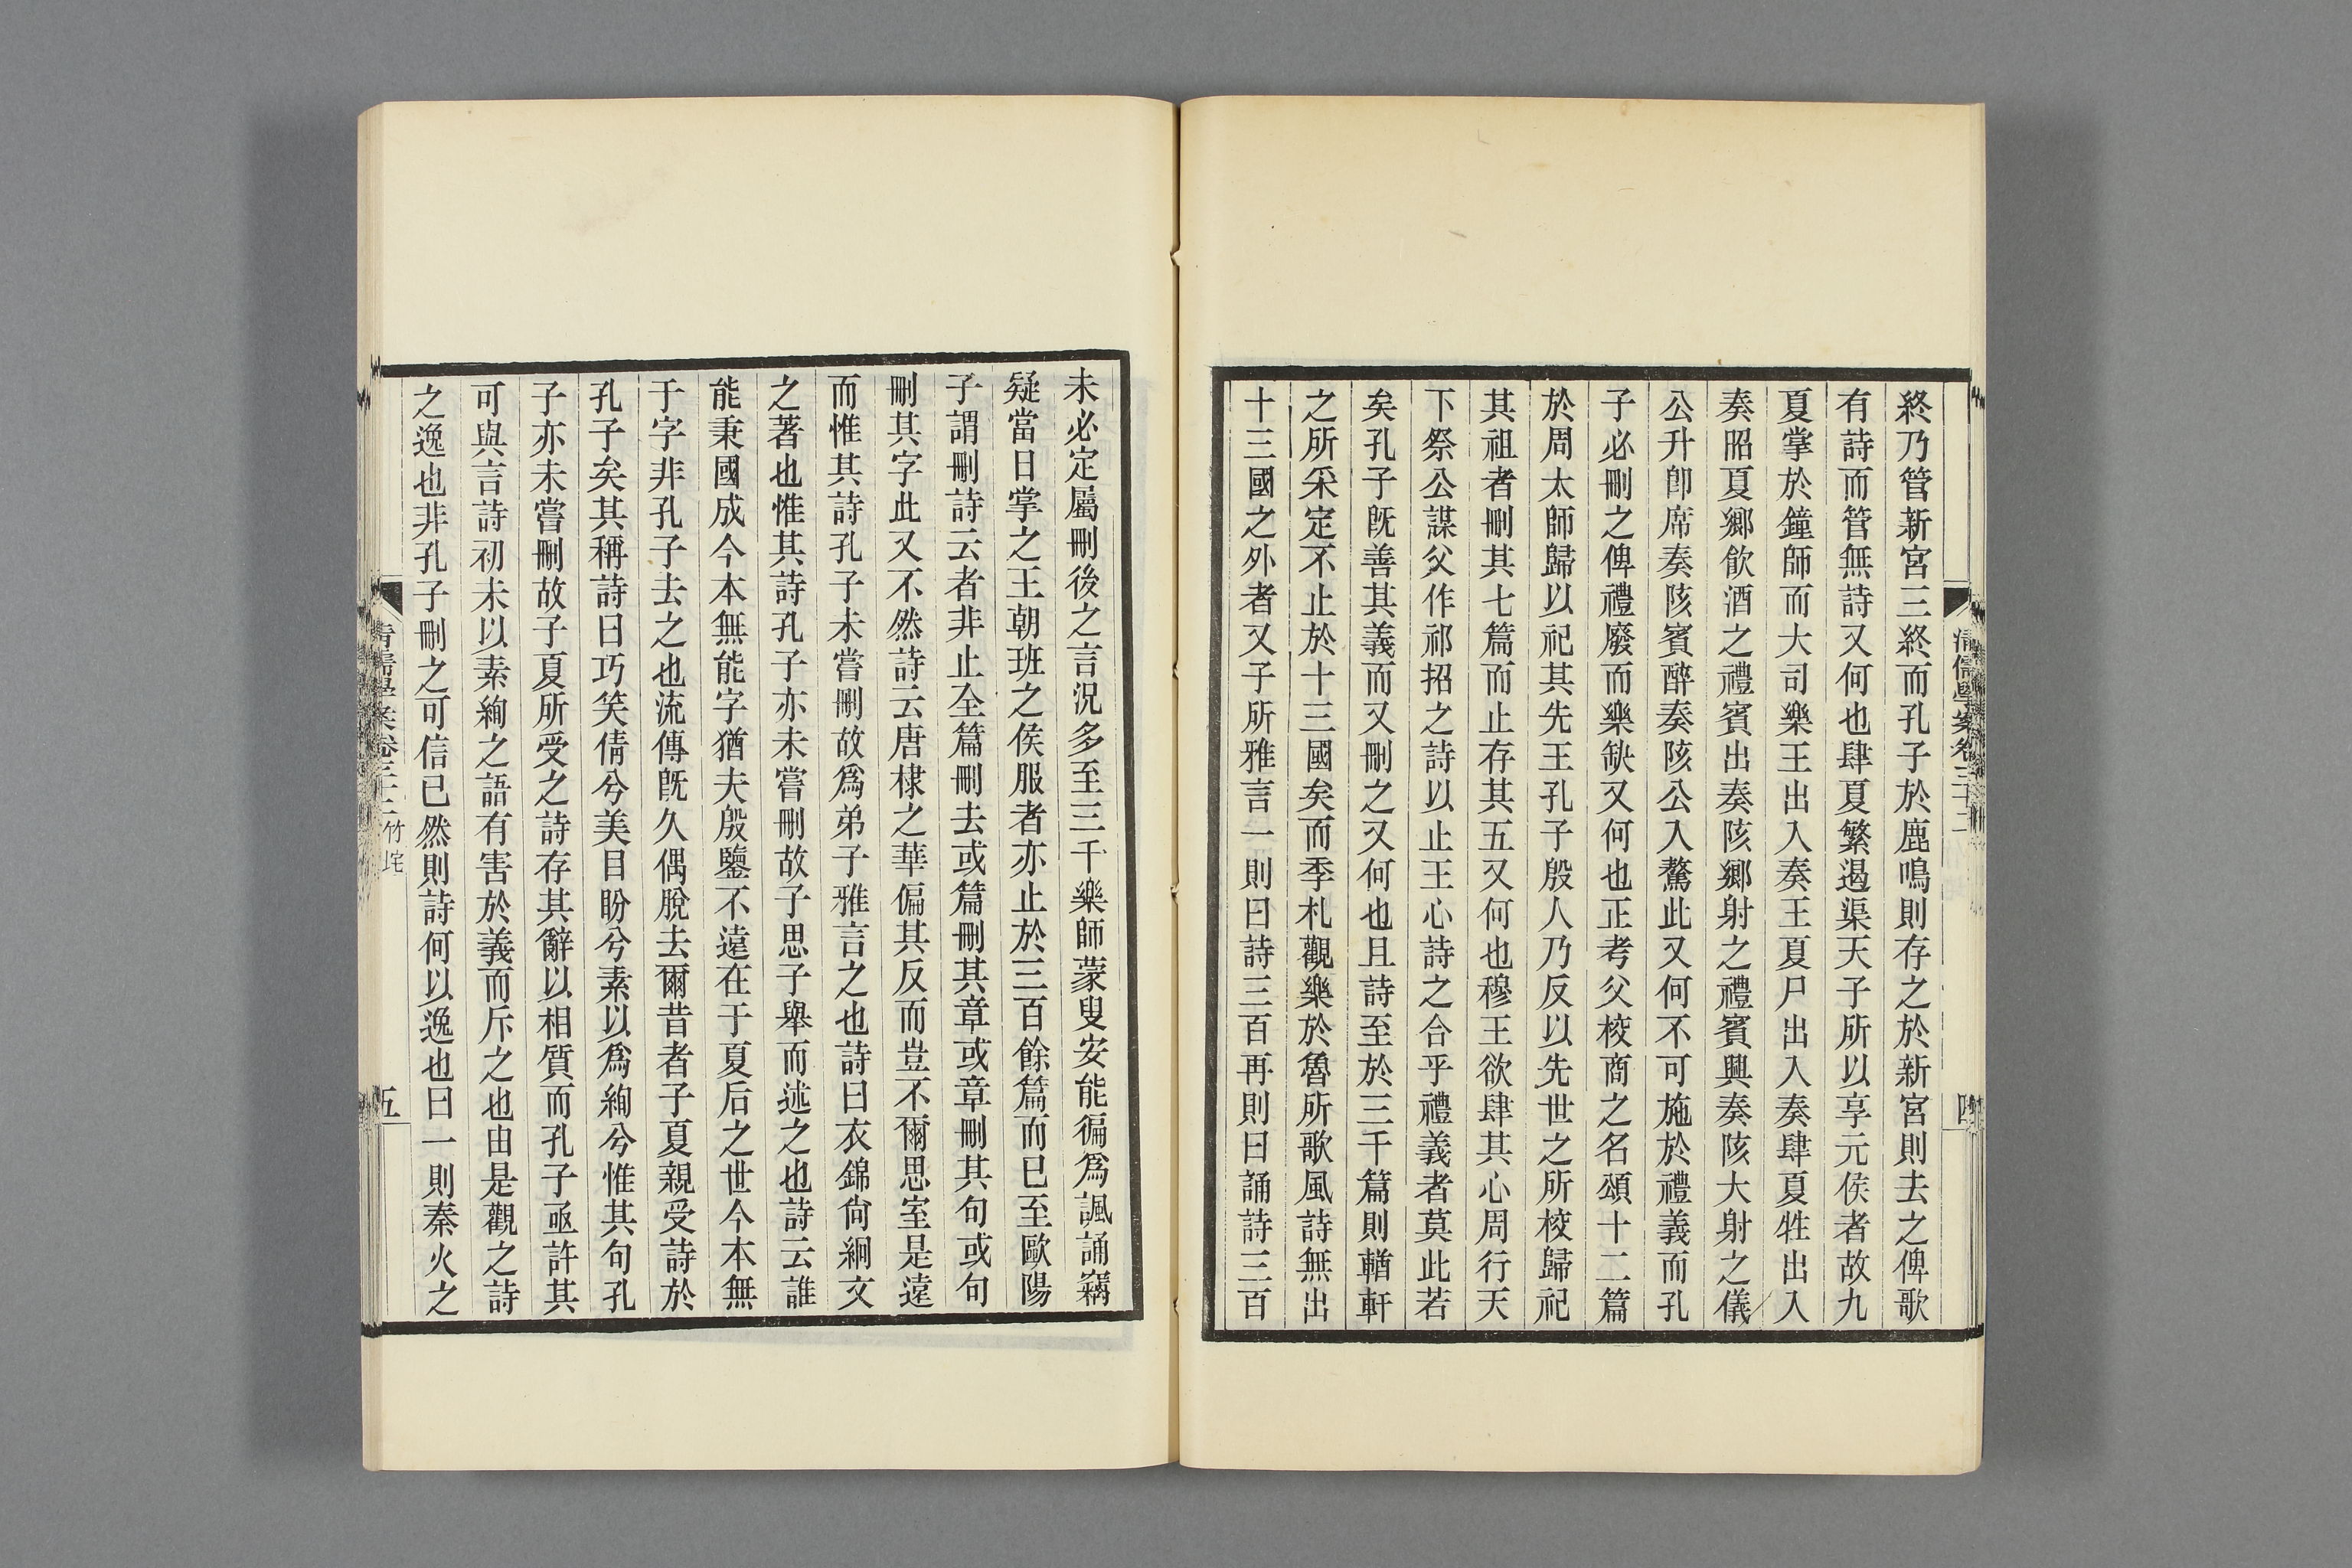 清儒學案卷三十二
四
終乃管新宮三終而孔子於鹿鳴則存之於新宮則去之俾歌
有詩而管無詩又何也肆夏繁遏渠天子所以享元侯者故九
夏掌於鐘師而大司樂王出入奏王夏尸出入奏肆夏牲出入
奏昭夏鄉飮酒之禮賓出奏陔鄉射之禮賓興奏陔大射之儀
公升卽席奏陔賓醉奏陔公入驁此又何不可施於禮義而孔
子必刪之俾禮廢而樂缺又何也正考父校商之名頌十二篇
於周太師歸以祀其先王孔子殷人乃反以先世之所校歸祀
其祖者刪其七篇而止存其五又何也穆王欲肆其心周行天
下祭公謀父作祁招之詩以止王心詩之合乎禮義者莫此若
矣孔子旣善其義而又刪之又何也且詩至於三千篇則輶軒
之所采定不止於十三國矣而季札觀樂於魯所歌風詩無出
十三國之外者又子所雅言一則曰詩三百再則曰誦詩三百
未必定屬刪後之言況多至三千樂師蒙叟安能徧爲諷誦竊
疑當日掌之王朝班之侯服者亦止於三百餘篇而已至歐陽
子謂刪詩云者非止全篇刪去或篇刪其章或章刪其句或句
刪其字此又不然詩云唐棣之華偏其反而豈不爾思室是遠
而惟其詩孔子未嘗刪故爲弟子雅言之也詩曰衣錦尙絅文
之著也惟其詩孔子亦未嘗刪故子思子舉而述之也詩云誰
能秉國成今本無能字猶夫殷鑒不遠在于夏后之世今本無
于字非孔子去之也流傳旣久偶脫去爾昔者子夏親受詩於
孔子矣其稱詩曰巧笑倩兮美目盼兮素以爲絢兮惟其句孔
子亦未嘗刪故子夏所受之詩存其辭以相質而孔子亟許其
可與言詩初未以素絢之語有害於義而斥之也由是觀之詩
之逸也非孔子刪之可信已然則詩何以逸也曰一則秦火之
清儒學案卷三十二 竹垞
五